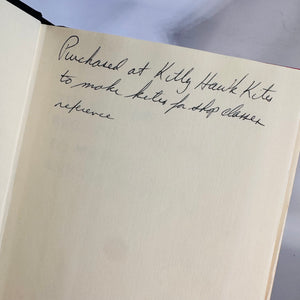 Purchased at Kitty Hawk Kites
to make kites for shop classes
refrence